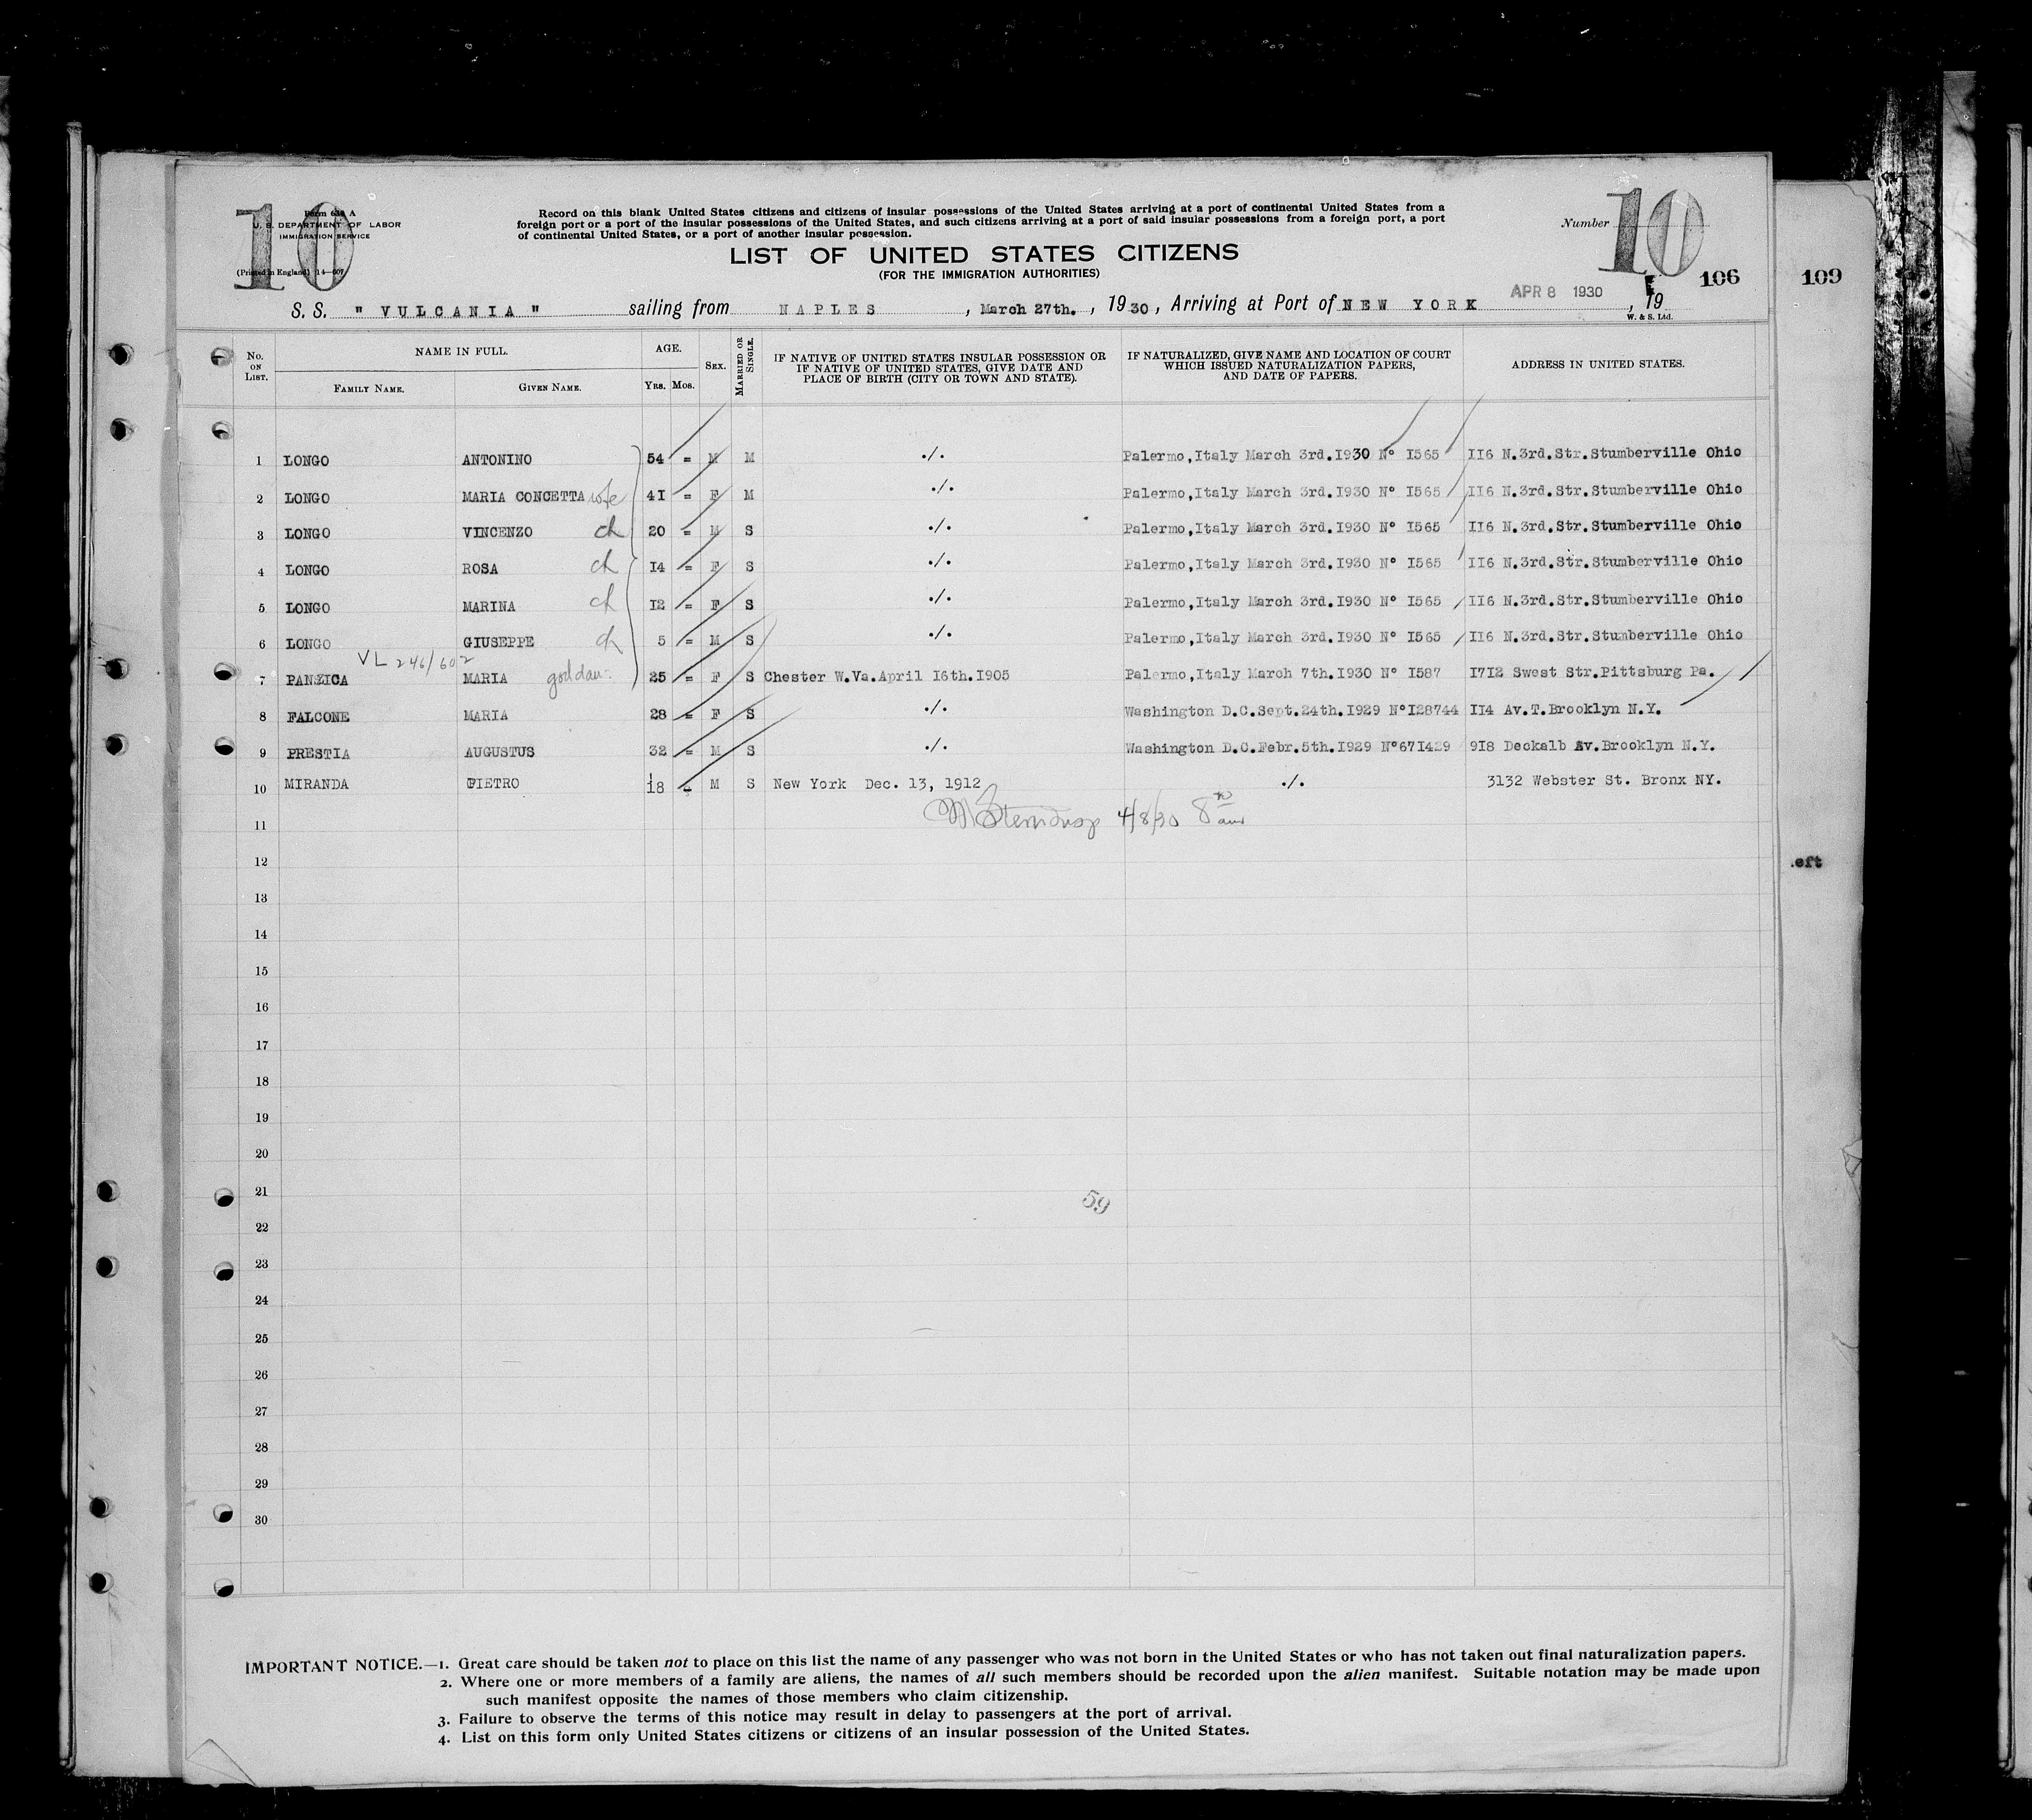 10
Form 630 A
U. S. DEPARTMENT OF LABOR
IMMIGRATION SERVICE
(Printed in England) 14—607
Record on this blank United States citizens and citizens of insular possessions of the United States arriving at a port of continental United States from a
foreign port or a port of the insular possessions of the United States, and such citizens arriving at a port of said insular possessions from a foreign port, a port
of continental United States, or a port of another insular possession.
Number 10
LIST OF UNITED STATES CITIZENS
(FOR THE IMMIGRATION AUTHORITIES)
106
109
S. S. " VULCANIA " sailing from NAPLES , March 27th. , 1930 , Arriving at Port of NEW YORK APR 8 1930 , 19
W. & S. Ltd.
No. ON LIST. NAME IN FULL. FAMILY NAME. GIVEN NAME. AGE. YRS. MOS. SEX. MARRIED OR SINGLE. IF NATIVE OF UNITED STATES INSULAR POSSESSION OR IF NATIVE OF UNITED STATES, GIVE DATE AND PLACE OF BIRTH (CITY OR TOWN AND STATE). IF NATURALIZED, GIVE NAME AND LOCATION OF COURT WHICH ISSUED NATURALIZATION PAPERS, AND DATE OF PAPERS. ADDRESS IN UNITED STATES.
1 LONGO ANTONINO 54 = M M ./. Palermo,Italy March 3rd.I930 Nº I565 II6 N.3rd.Str.Stumberville Ohio
2 LONGO MARIA CONCETTA wife 4I = F M ./. Palermo,Italy March 3rd.I930 Nº I565 II6 N.3rd.Str.Stumberville Ohio
3 LONGO VINCENZO ch 20 = M S ./. Palermo,Italy March 3rd.I930 Nº I565 II6 N.3rd.Str.Stumberville Ohio
4 LONGO ROSA ch I4 = F S ./. Palermo,Italy March 3rd.I930 Nº I565 II6 N.3rd.Str.Stumberville Ohio
5 LONGO MARINA ch I2 = F S ./. Palermo,Italy March 3rd.I930 Nº I565 II6 N.3rd.Str.Stumberville Ohio
6 LONGO GIUSEPPE ch 5 = M S ./. Palermo,Italy March 3rd.I930 Nº I565 II6 N.3rd.Str.Stumberville Ohio
VL 246/602
7 PANZICA MARIA god dau. 25 = F S Chester W.Va.April I6th.I905 Palermo,Italy March 7th.I930 Nº I587 I7I2 Swest Str.Pittsburg Pa.
8 FALCONE MARIA 28 = F S ./. Washington D.C.Sept.24th.I929 NºI28744 II4 Av.T.Brooklyn N.Y.
9 PRESTIA AUGUSTUS 32 = M S ./. Washington D.C.Febr.5th.I929 Nº67I429 9I8 Deckalb Av.Brooklyn N.Y.
10 MIRANDA PIETRO 18 = M S New York Dec. 13, 1912 ./. 3132 Webster St. Bronx NY.
11 4/8/30 8 am
12
.eft
13
14
15
16
17
18
19
20
21
59
22
23
24
25
26
27
28
29
30
IMPORTANT NOTICE.—1. Great care should be taken not to place on this list the name of any passenger who was not born in the United States or who has not taken out final naturalization papers.
2. Where one or more members of a family are aliens, the names of all such members should be recorded upon the alien manifest. Suitable notation may be made upon
such manifest opposite the names of those members who claim citizenship.
3. Failure to observe the terms of this notice may result in delay to passengers at the port of arrival.
4. List on this form only United States citizens or citizens of an insular possession of the United States.